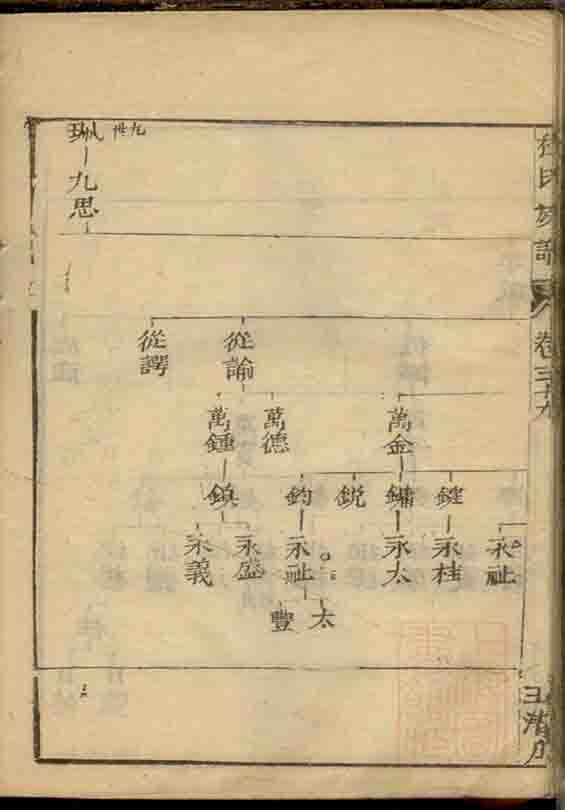 氏族譜 卷三十九
永祉
鍵 永桂
萬金 鏞 永太
銳
鈞 永祉 太 豐
從諭 萬德
萬鍾 鎮 永盛 永義
從諤
九世
珮 九思